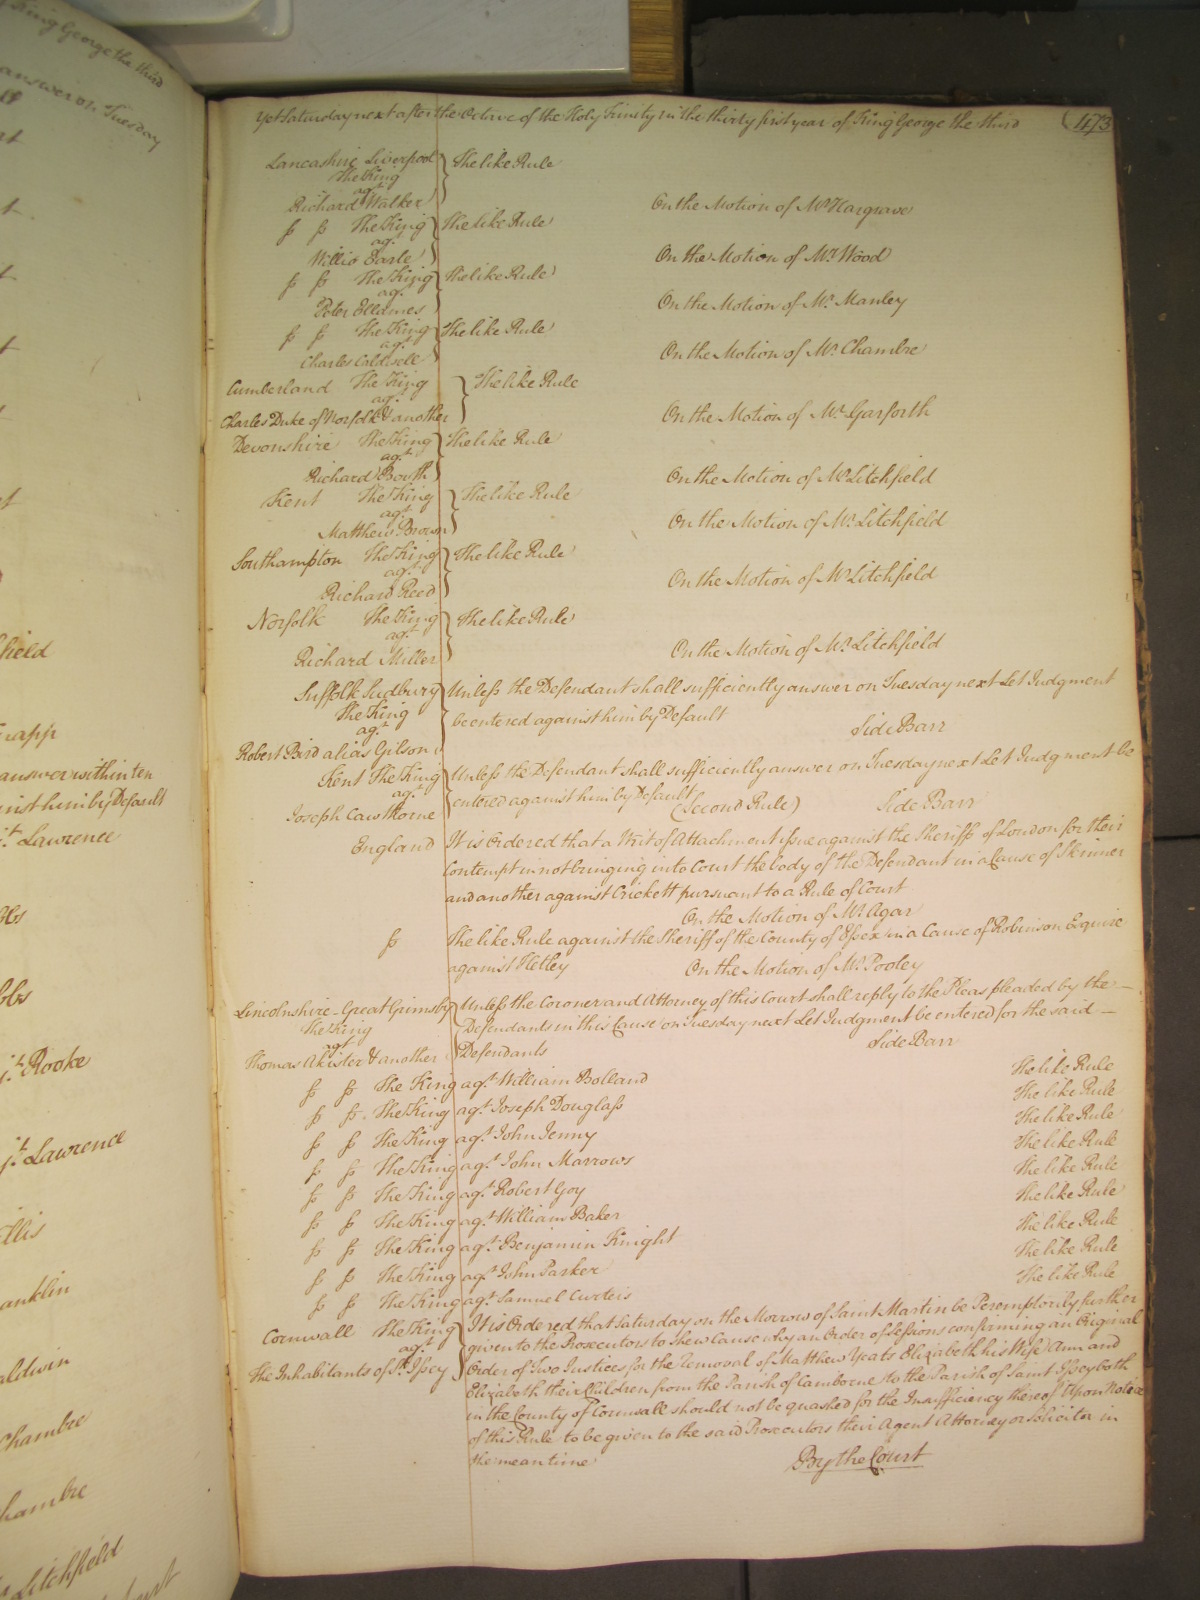 Yet Saturday next after the Octave of the Holy Trinity in the thirty first year of King George the third
473
Lancashire Liverpool
The King
agt
Richard Walker
The like Rule
On the Motion of Mr Hargrave
The King
agt
Willis Earle
The like Rule
On the Motion of Mr Wood
The King
agt
Peter Elldmes
The like Rule
On the Motion of Mr Manley
The King
agt
Charles Caldwell
The like Rule
On the Motion of Mr Chambre
Cumberland The King
agt
Charles Duke of Norfolk & another
The like Rule
On the Motion of Mr Garforth
Devonshire The King
agt
Richard
The like Rule
On the Motion of Mr Litchfield
Kent The King
agt
Matthew Brown
The like Rule
On the Motion of Mr Litchfield
Southampton The King
agt
Richard Reed
The like Rule
On the Motion of Mr Litchfield
Norfolk The King
agt
Richard Miller
The like Rule
On the Motion of Mr Litchfield
Suffolk Sudbury
The King
agt
Robert Bird alias Gilson
Unless the Defendant shall sufficiently answer on Tuesday next Let Judgment
be entered against him by Default
Side Barr
Kent The King
agt
Joseph Cawthorne
Unless the Defendant shall sufficiently answer on Tuesday next Let Judgment be
entered against him by Default
(Second Rule) Side Barr
England It is Ordered that a Writ of Attachment issue against the Sheriff of London for their
Contempt in not bringing into Court the body of the Defendant in a Cause of Skinner
and another against Crickett pursuant to a Rule of Court
On the Motion of Mr Agar
The like Rule against the Sheriff of the County of Essex in a Cause of Robinson Esquire
against Hetley On the Motion of Mr Pooley
Lincolnshire - Great Grimsby
The King
agt
Thomas Akister & another
Unless the Coroner and Attorney of this Court shall reply to the Pleas pleaded by the
Defendants in this Cause on Tuesday next Let Judgment be entered for the said
Defendants Side Barr
The King agt William Bolland The like Rule
The King agt Joseph Douglass The like Rule
The King agt John Jenny The like Rule
The King agt John Marrows The like Rule
The King agt Robert Goy The like Rule
The King agt William Baker The like Rule
The King agt Benjamin Knight The like Rule
The King agt John Parker The like Rule
The King agt Samuel Curteis The like Rule
Cornwall The King
agt
The Inhabitants of St Issey
It is Ordered that Saturday on the Morrow of Saint Martin be Peremptorily further
given to the Prosecutors to shew Cause why an Order of Sessions confirming an Original
Order of Two Justices for the Removal of Matthew Yeats Elizabeth his Wife Ann and
Elizabeth their Children from the Parish of Camborne to the Parish of Saint Issey both
in the County of Cornwall should not be quashed for the Insufficiency thereof Upon Notice
of this Rule to be given to the said Prosecutors their Agent Attorney or Solicitor in
the mean time
By the Court
King George the third
answer on Tuesday
answer within ten
against him by Default
Lawrence
Rooke
Lawrence
Chambre
Litchfield